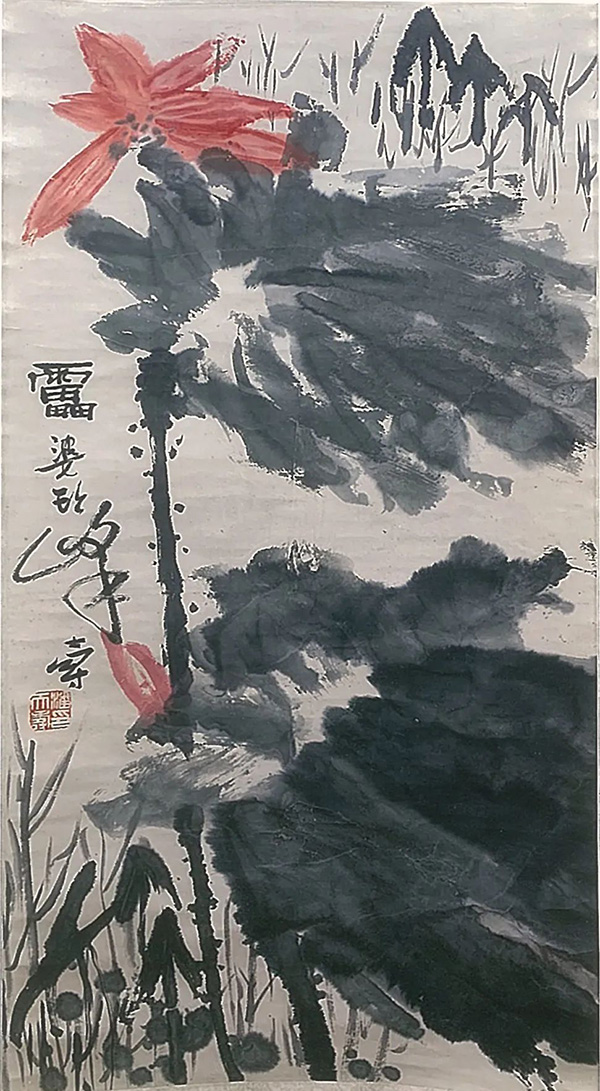 靁婆頭峰壽